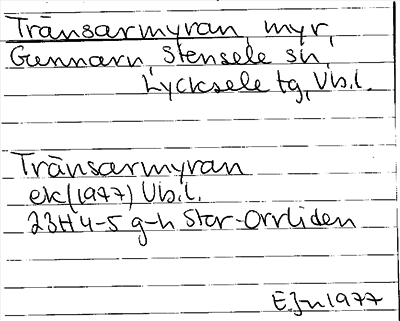 Tränsarmyran, myr,
Gunnarn, Stensele sn,
Lycksele tg, Vb.l.
Tränsarmyran
ek (1977) Vb.l.
23H 4-5 g-h Stor-Orrliden
E.Jn 1977